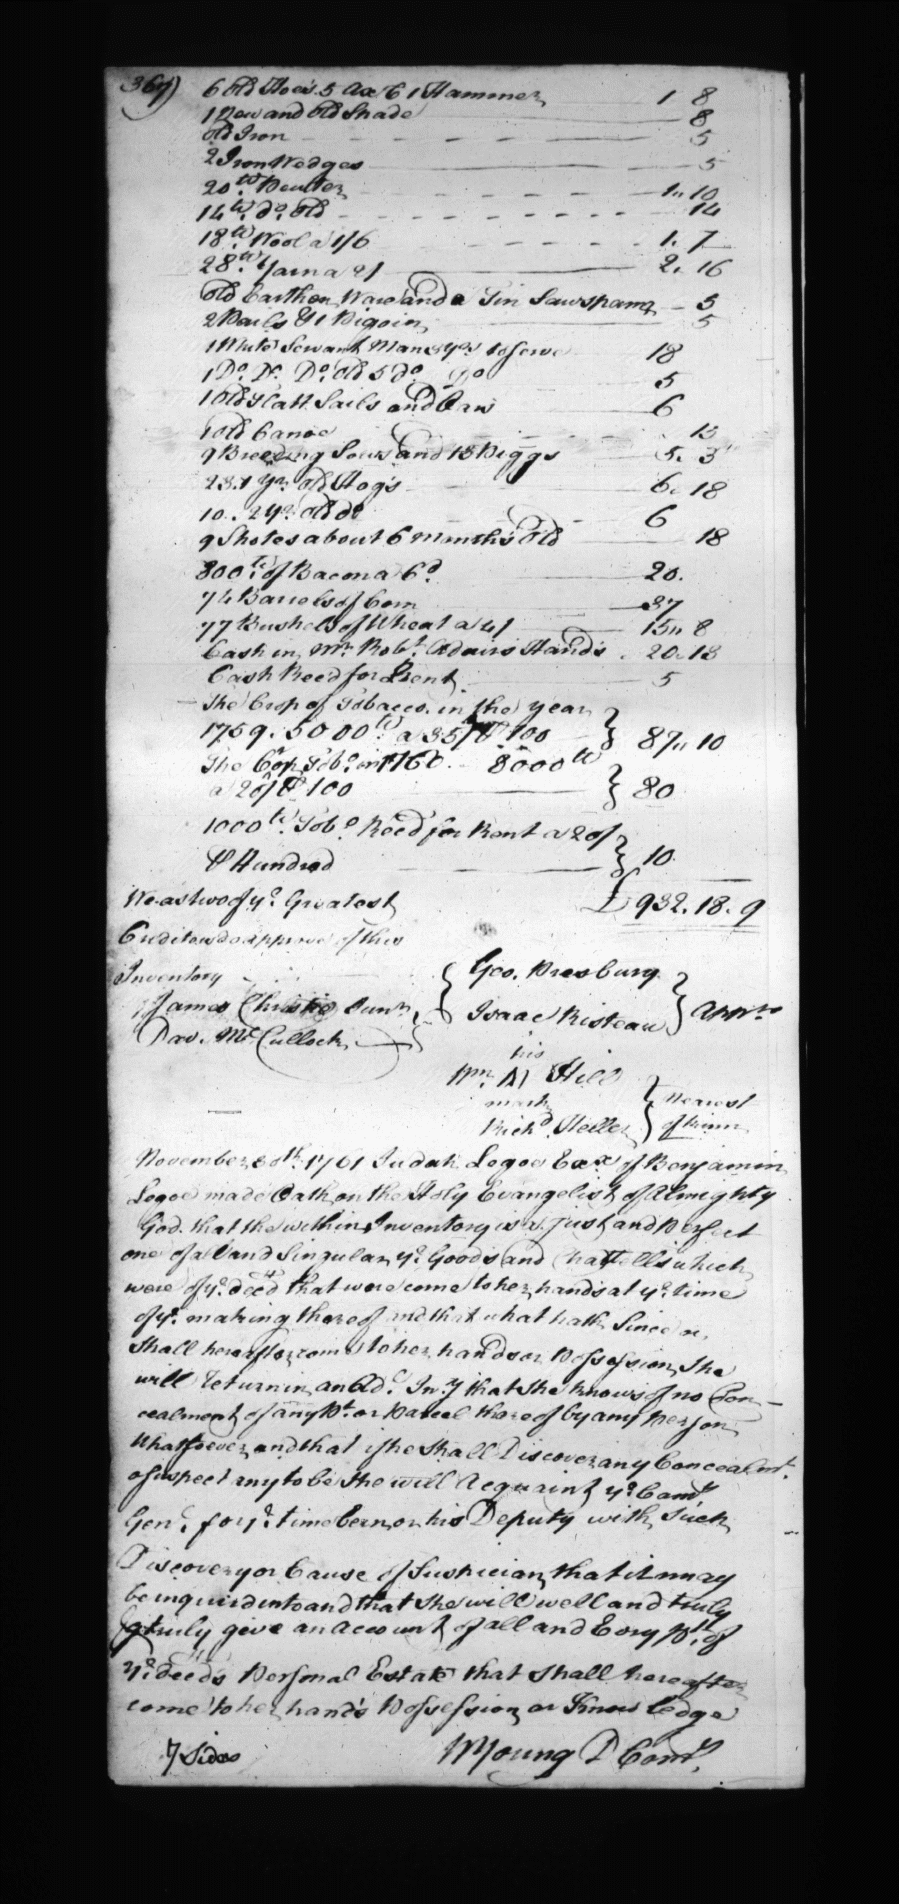 367)
6 old Hoes 5 Axes 1 Hammer 1 8
1 New and old Spade 8
old Iron 5
2 Iron Wedges 5
20 lb. Pewter 1,, 10
14 lb. do. old 14
18 lb. Wool a 1/6 1. 7
28 lb. Yarn a 2/ 2. 16
old Earthen Ware and a Tin Sawspann 5
2 Pails & 1 Pigoin 5
1 White Servant Man 3 yrs. to serve 18
1 Do. Do. Do. old 5 do. Do 5
1 old Flatt Sails and Oars 6
1 old Canoe 15
9 Breeding Sows and 18 Piggs 5. 3
23. 1 yr. old Hogs 6. 18
10. 2 yr. old do 6
9 Shotes about 6 months old 18
800 lb. of Bacon a 6d 20.
74 Barrels of Corn 37
77 Bushels of Wheat a 4/ 15,, 8
Cash in Mr. Robt. Adairs Hands 20. 18
Cash Reed for Rent 5
The Crop of Tobacco in the year
1759. 5000 lb a 35/ ⅌ 100 } 87,, 10
The Crop Tobo. in 1760. 8000 lb
a 20/ ⅌ 100 } 80
1000 lb. Tobo. Reed for Rent a 20/
⅌ Hundred } 10.
We as two of ye. Greatest £932. 18. 9
Creditors do approve of this
Inventory
James Christie Junr.
Dav. McCullock
Geo. Presbury
Isaac Risteau } Apprs
his
Wm. M Hill
mark
Richd. Heller } Nearest of Kinn
November 30th. 1761 Judah Legoe Exx of Benjamin
Legoe made Oath on the Holy Evangelist of Almighty
God. that the within Inventory is a just and Perfect
one of all and Singular ye. Goods and Chattells which
were of ye. decd that were come to her hands at ye. time
of ye. making thereof and that what hath Since or
Shall hereafter come to her hands or Possession She
will return in an Adl. Iny that She knows of no Con-
cealment of any Pt. or Parcel thereof by any Person
Whatsoever and that if she Shall Discover any Concealmt.
or suspect any to be She will Acquaint ye. Comy
Genl. for ye. time being or his Deputy with Such
Discovery or Cause of Suspician that it may
be inquired into and that She will well and truly
& truly give an Account of all and Every Pt. of
ye. deced's Personal Estate that Shall hereafter
come to her hands Possession or Knowledge
7 Sides W Young D Comy.